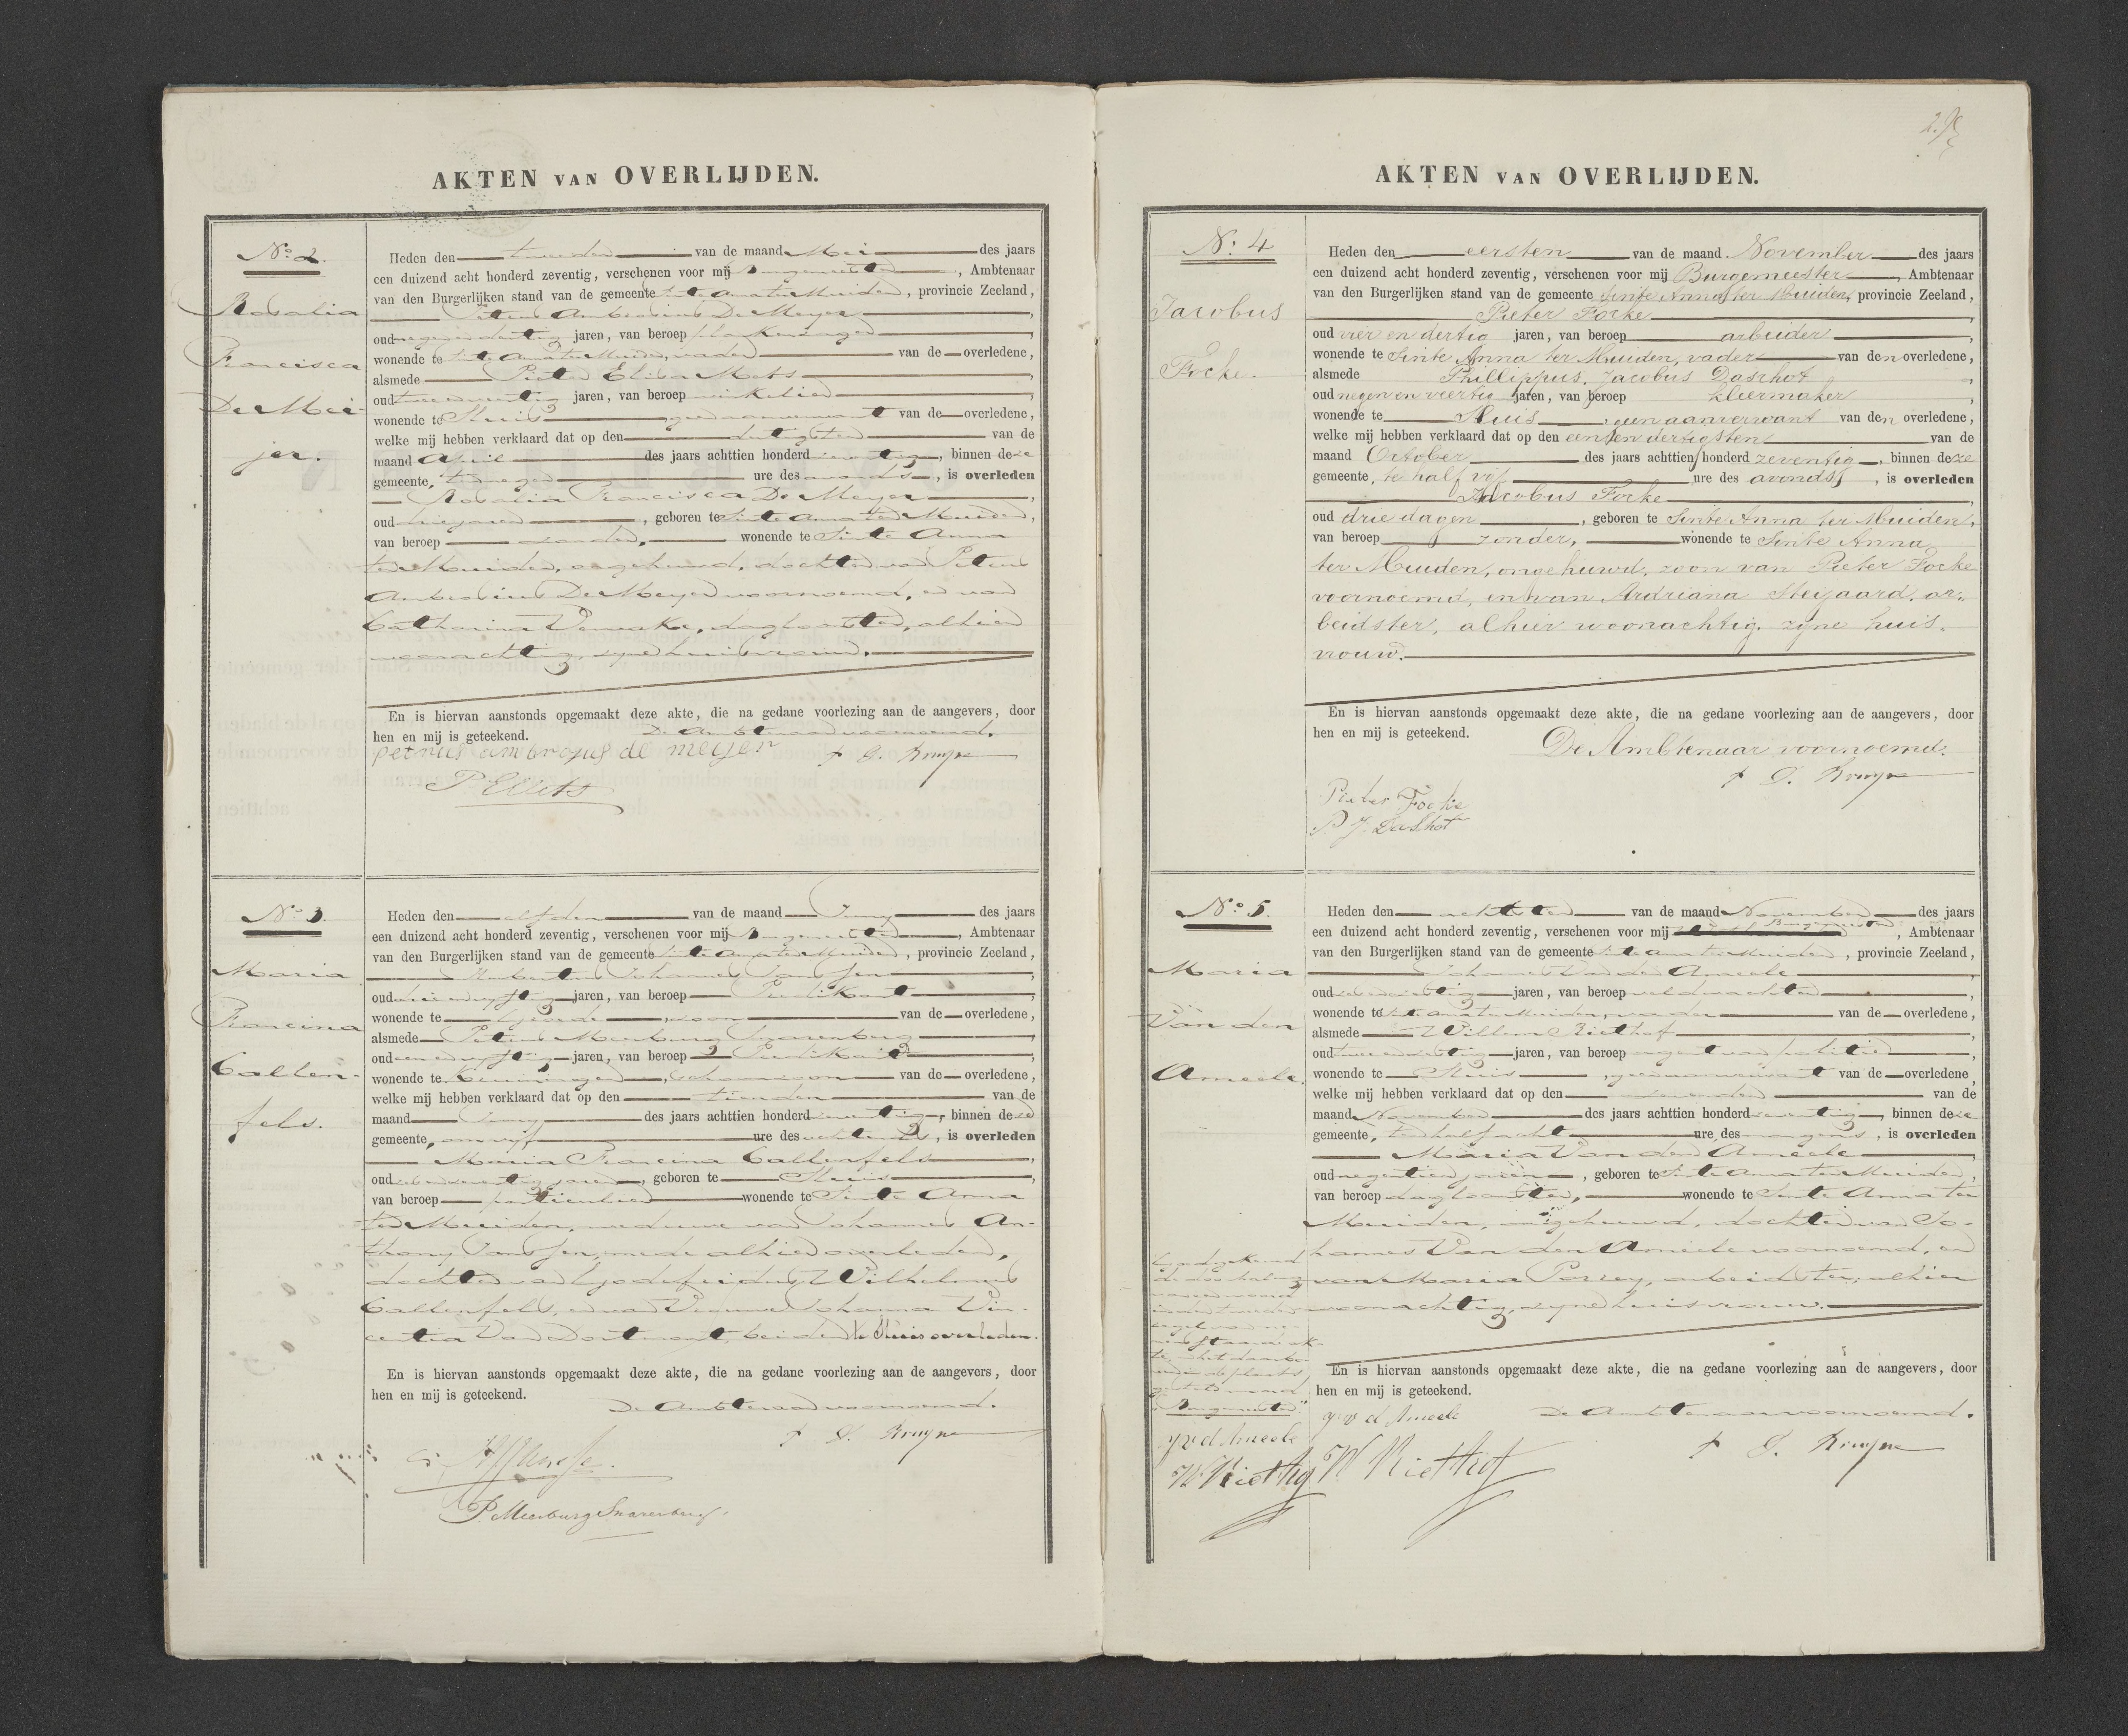 AKTEN VAN OVERLIJDEN.
No. 2.
Rosalia
Francisca
De Mei-
jer.
Heden den tweeden van de maand Mei des jaars
een duizend acht honderd zeventig, verschenen voor mij Burgemeester, Ambtenaar
van den Burgerlijken stand van de gemeente Sinte Anna ter Muiden, provincie Zeeland,
Petrus Ambrosius De Meyer,
oud negenendertig jaren, van beroep
wonende te Sinte Anna ter Muiden, vader van de overledene,
alsmede Pieter Mets,
oud jaren, van beroep winkelier,
wonende te Sluis geen aanverwant van de overledene,
welke mij hebben verklaard dat op den dertigsten van de
maand April des jaars achttien honderd zeventig, binnen deze
gemeente, ten negen ure des avonds, is overleden
Rosalia Francisca De Meyer,
oud drie jaren, geboren te Sinte Anna ter Muiden,
van beroep zonder, wonende te Sinte Anna
ter Muiden, ongehuwd, dochter van Petrus
Ambrosius De Meyer voornoemd, en van
Catharina, dagloonster, alhier
woonachtig, zyne huisvrouw.
En is hiervan aanstonds opgemaakt deze akte, die na gedane voorlezing aan de aangevers, door
hen en mij is geteekend. De Ambtenaar voornoemd.
petrus ambrosius de meyer
P E Mets
No. 3.
Maria
Francina
Callen-
fels.
Heden den elfden van de maand Juny des jaars
een duizend acht honderd zeventig, verschenen voor mij Burgemeester, Ambtenaar
van den Burgerlijken stand van de gemeente Sinte Anna ter Muiden, provincie Zeeland,
Johannes Janssen,
oud drie en vyftig jaren, van beroep Predikant,
wonende te Groede, zoon van de overledene,
alsmede Pieter Meerburg Snarenberg,
oud een en vyftig jaren, van beroep Predikant,
wonende te, schoonzoon van de overledene,
welke mij hebben verklaard dat op den tienden van de
maand Juny des jaars achttien honderd zeventig, binnen deze
gemeente, om vyf ure des, is overleden
Maria Francina Callenfels,
oud jaren, geboren te Sluis,
van beroep particuliere wonende te Sinte Anna
ter Muiden, weduwe van Johannes An-
thony Janssen, mede alhier overleden,
dochter van Godefridus Wilhelmus
Callenfels, en van Vrouwe Johanna Vin-
centia Van Dortmont, beiden te Sluis overleden.
En is hiervan aanstonds opgemaakt deze akte, die na gedane voorlezing aan de aangevers, door
hen en mij is geteekend.
De Ambtenaar voornoemd.
P. Meerburg Snarenberg.
AKTEN VAN OVERLIJDEN.
No. 4
Jacobus
Focke.
Heden den eersten van de maand November des jaars
een duizend acht honderd zeventig, verschenen voor mij Burgemeester, Ambtenaar
van den Burgerlijken stand van de gemeente Sinte Anna ter Muiden, provincie Zeeland,
Pieter Focke,
oud vier en dertig jaren, van beroep arbeider,
wonende te Sinte Anna ter Muiden, vader van den overledene,
alsmede Phillippus, Jacobus Daschot,
oud negen en veertig jaren, van beroep kleermaker,
wonende te Sluis, geen aanverwant van den overledene,
welke mij hebben verklaard dat op den een en dertigsten van de
maand October des jaars achttien honderd zeventig, binnen deze
gemeente, te half vijf ure des avonds, is overleden
Jacobus Focke,
oud drie dagen, geboren te Sinte Anna ter Muiden,
van beroep zonder, wonende te Sinte Anna
ter Muiden, ongehuwd, zoon van Pieter Focke
voornoemd, en van Ardriana Steijaard, ar-
beidster, alhier woonachtig, zijne huis-
vrouw.
En is hiervan aanstonds opgemaakt deze akte, die na gedane voorlezing aan de aangevers, door
hen en mij is geteekend.
De Ambtenaar voornoemd.
Pieter Focke
P. J. Daschot
No. 5.
Maria
Van den
Ameele.
Heden den achtsten van de maand November des jaars
een duizend acht honderd zeventig, verschenen voor mij Burgemeester, Ambtenaar
van den Burgerlijken stand van de gemeente Sinte Anna ter Muiden, provincie Zeeland,
Johannes Van den Ameele,
oud jaren, van beroep veldwachter,
wonende te Sinte Anna ter Muiden, vader van de overledene,
alsmede Willem Riethof,
oud jaren, van beroep agent van politie,
wonende te Sluis, geen aanverwant van de overledene,
welke mij hebben verklaard dat op den zevenden van de
maand November des jaars achttien honderd zeventig, binnen deze
gemeente, ten half acht ure des morgens, is overleden
Maria Van den Ameele,
oud negentien jaren, geboren te Sinte Anna ter Muiden,
van beroep dagloonster, wonende te Sinte Anna ter
Muiden, ongehuwd, dochter van Jo-
hannes Van den Ameele voornoemd, en
van Maria, arbeidster, alhier
woonachtig, zyne huisvrouw.
En is hiervan aanstonds opgemaakt deze akte, die na gedane voorlezing aan de aangevers, door
hen en mij is geteekend.
De Ambtenaar voornoemd.
Goedgekeurd
de doorhaling
Burgemeester
W Riethof
W Riethof